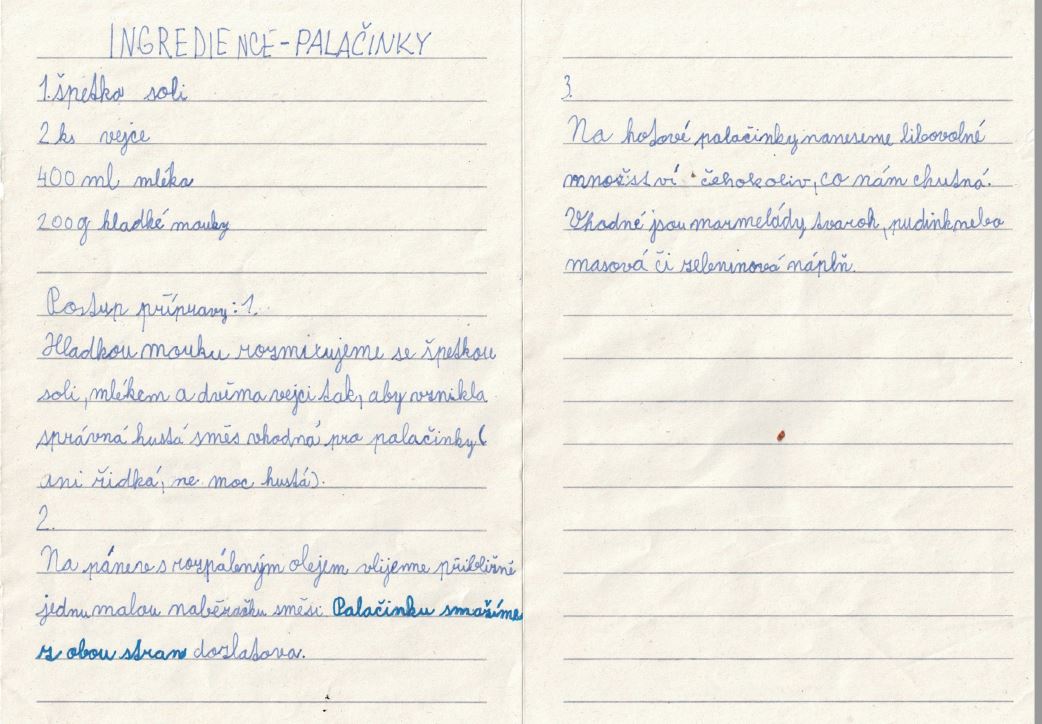 INGREDIENCE-PALAČINKY
1.špetka soli
2 ks vejce
400 ml mléka
200g hladké mouky
Postup přípravy:1.
Hladkou mouku rozmixujeme se špetkou
soli, mlékem a dvěma vejci tak, aby vznikla
správná hustá směs vhodná pro palačinky(
ani řidká, ne moc hustá).
2.
Na pánev s rozpáleným olejem vlijeme přibližně
jednu malou naběračku směsi. Palačinku smažíme
z obou stran dozlatova.
3.
Na hotové palačinky naneseme libovolné
množství čehokoliv, co nám chutná.
Vhodné jsou marmelády tvaroh, pudink nebo
masová či zeleninová náplň.